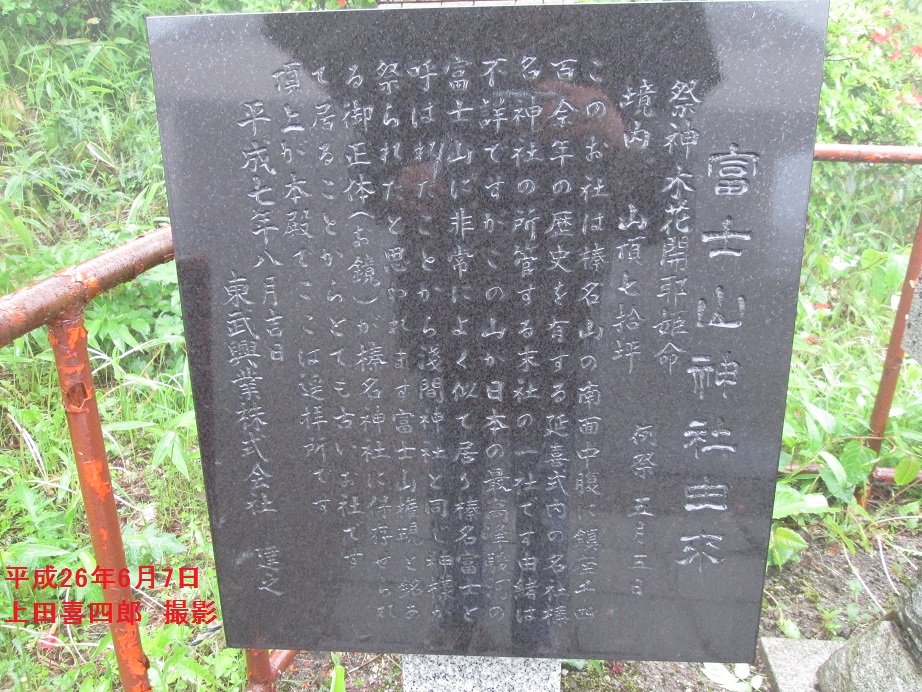 富士山神社由来
祭神木花開耶姫命 例祭 五月五日
境内 山頂七拾坪
このお社は榛名山の南面中腹に鎮座千四
百余年の歴史を有する延喜式内の名社榛
名神社の所管する末社の一社です由緒は
不詳ですがこの山が日本の最高峰駿河の
富士山に非常によく似て居り榛名富士と
呼ばれたことから浅間神社と同じ神様が
祭られたと思われます富士山権現と銘ある
る御正体(お鏡)が榛名神社に保存せられ
て居ることからとても古いお社です
頂上が本殿でここは遥拝所です
平成七年八月吉日
東武興業株式会社 建之
平成26年6月7日
上田喜四郎 撮影